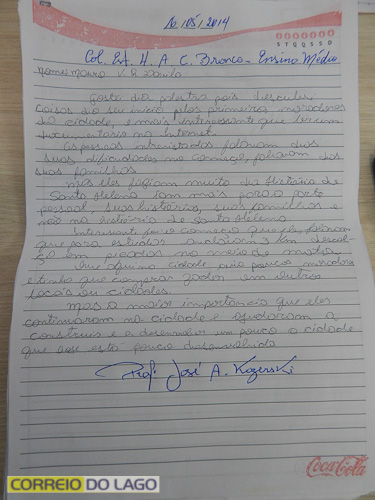 10/05/2014
S T Q Q S S D
Col. Est. H. A. C. Bronco - Ensino Médio
Nome: V. R.
Gostei da palestra pois descubri
coisas do seu inicio pelos primeiros moradores
da cidade, e mais interessante que tem um
documentario na Internet.
As pessoas intrevistadas falaram das
suas dificuldades no começo, falaram das
suas familhas.
Mas eles fogiam muito da História de
Santa Helena iam mais para o parte
pessoal, suas histórias, suas familhas e
não na história de Santa Helena.
Interessante foi o começo que eles falaram
que para estudar andavam 3 km descal-
ço em picadas no meio do mato.
Que aqui na cidade avia poucos moradores
e tinha que comprar as em outros
locais ou cidades.
Mas o mais importancia que eles
continuaram na cidade e ajudaram a
construir e a desenvolver um pouco a cidade
que oje está pouco desenvolvida
Prof. José A. Kozerski
Coca-Cola
CORREIO DO LAGO